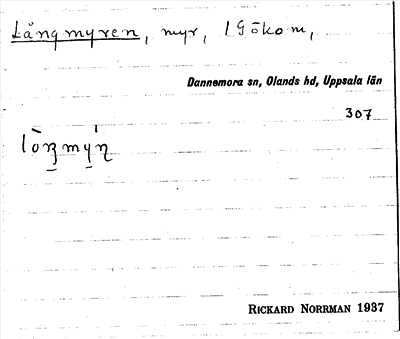 Långmyren, myr, 1 Gökom,
Dannemora sn, Olands hd, Uppsala län
307
RICKARD NORRMAN 1937